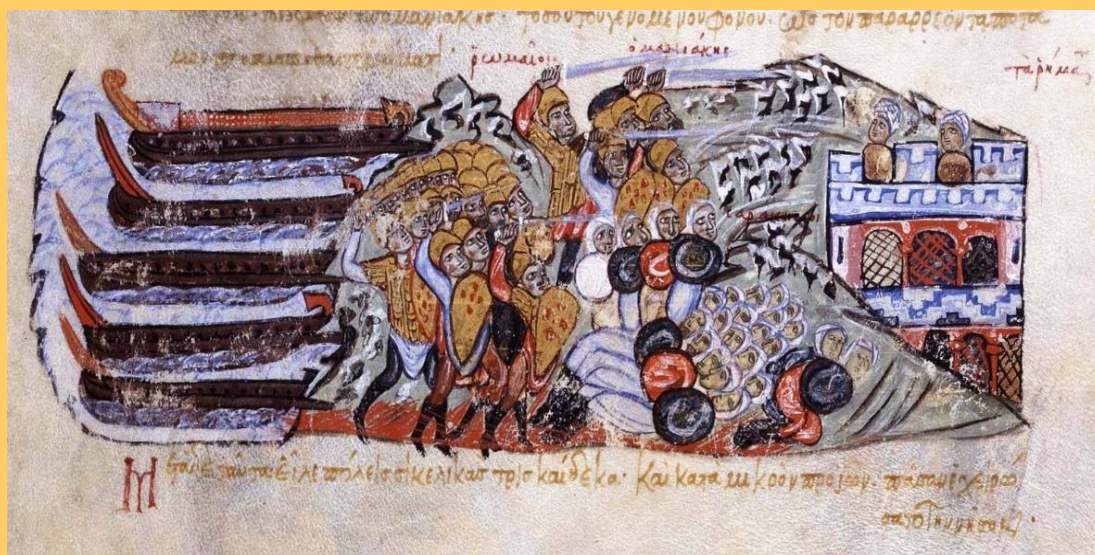 ὁ μανιάκης · τοσούτου γενομένου φόνου · ὡς τὸν παραρρέοντα ποτα
μὸν
ῥωμαῖοι ὁ μανιάκης
σαρακηνοί
Μετὰ δὲ ταῦτα εἷλε πόλεις σικελικὰς τρισκαίδεκα · καὶ κατὰ μικρὸν προϊὸν · πᾶσαν ἐχειρώ
σατο τὴν νῆσον ·